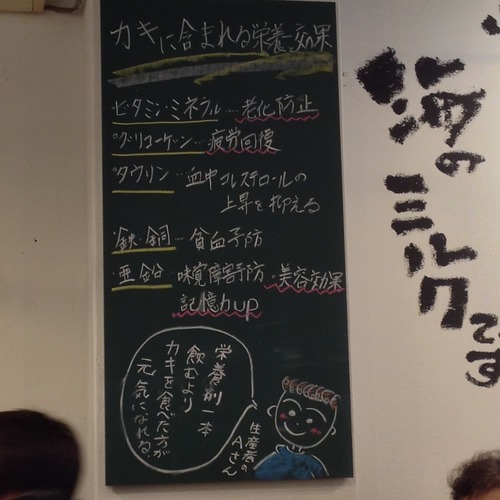 カキに含まれる栄養効果
ビタミン・ミネラル…老化防止
グリコーゲン…疲労回復
タウリン…血中コレステロールの
上昇を抑える
鉄・銅…貧血予防
亜鉛…味覚障害予防・美容効果
記憶力up
栄養剤一本
飲むより
カキを食べた方が
元気になれる。
生産者の
Aさん
海のミルクです